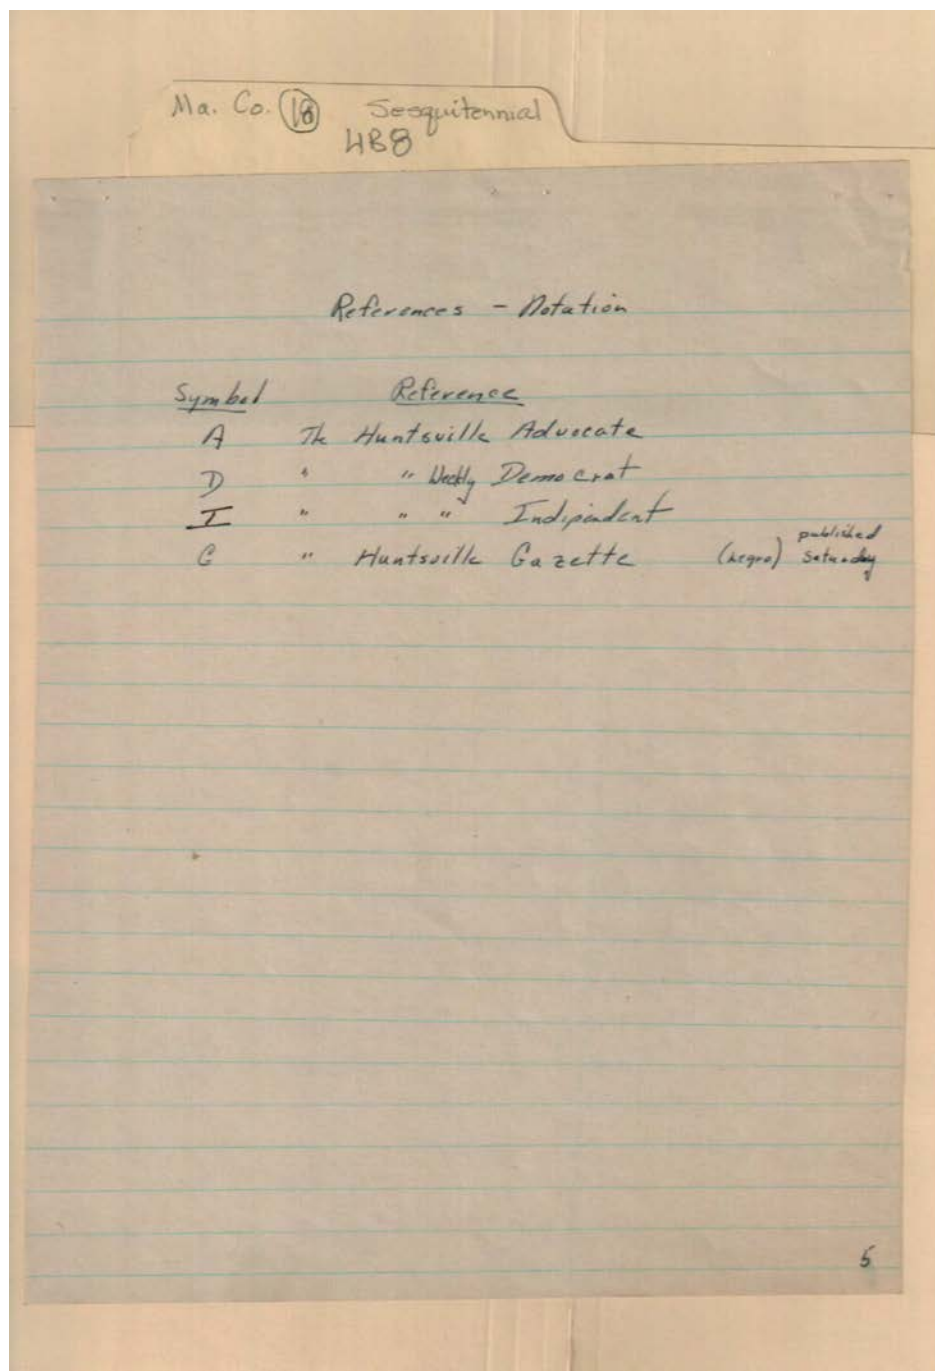 Ma. Co. 18 Sesquitennial
4B8
References - Notation
Symbol Reference
A The Huntsville Advocate
D " " Weekly Democrat
I " " " Indipendent
G " Huntsville Gazette (negro) published Saturday
5